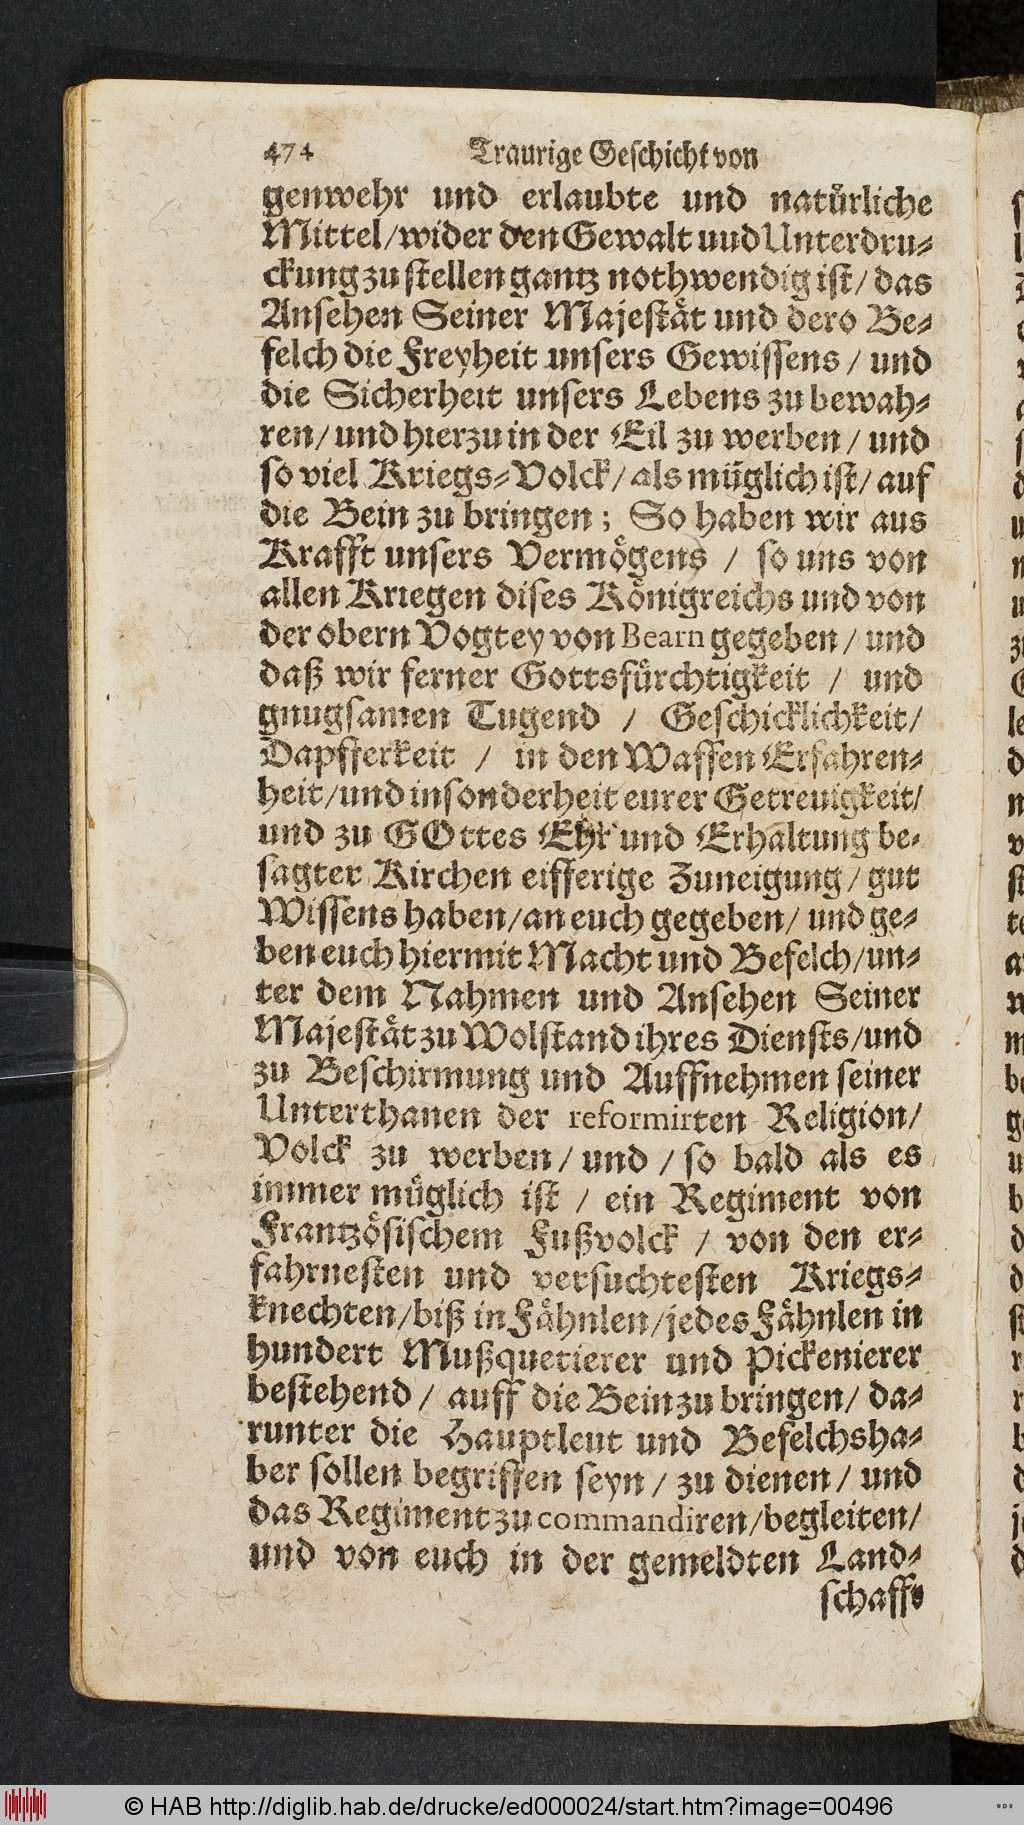 474 Traurige Geschicht von
genwehr und erlaubte und natürliche
Mittel/wider den Gewalt uud Unterdru-
ckung zu stellen gantz nothwendig ist/ das
Ansehen Seiner Majestät und dero Be-
felch die Freyheit unsers Gewissens / und
die Sicherheit unsers Lebens zu bewah-
ren/ und hierzu in der Eil zu werben / und
so viel Kriegs-Volck/ als müglich ist/ auf
die Bein zu bringen; So haben wir aus
Krafft unsers Vermögens / so uns von
allen Kriegen dises Königreichs und von
der obern Vogtey von Bearn gegeben / und
daß wir ferner Gottsfürchtigkeit / und
gnugsamen Tugend / Geschicklichkeit/
Dapfferkeit / in den Waffen Erfahren-
heit/und insonderheit eurer Getreuigkeit/
und zu GOttes Ehr und Erhaltung be-
sagter Kirchen eifferige Zuneigung/ gut
Wissens haben/an euch gegeben/ und ge-
ben euch hiermit Macht und Befelch/un-
ter dem Nahmen und Ansehen Seiner
Majestät zu Wolstand ihres Diensts/und
zu Beschirmung und Auffnehmen seiner
Unterthanen der reformirten Religion/
Volck zu werben/ und / so bald als es
immer müglich ist / ein Regiment von
Frantzösischem Fußvolck / von den er-
fahrnesten und versuchtesten Kriegs-
knechten/biß in Fähnlen/jedes Fähnlen in
hundert Mußquetierer und Pickenierer
bestehend / auff die Bein zu bringen/ da-
runter die Hauptleut und Befelchsha-
ber sollen begriffen seyn / zu dienen / und
das Regiment zu commandiren/begleiten/
und von euch in der gemeldten Land-
schafft
© HAB http://diglib.hab.de/drucke/ed000024/start.htm?image=00496